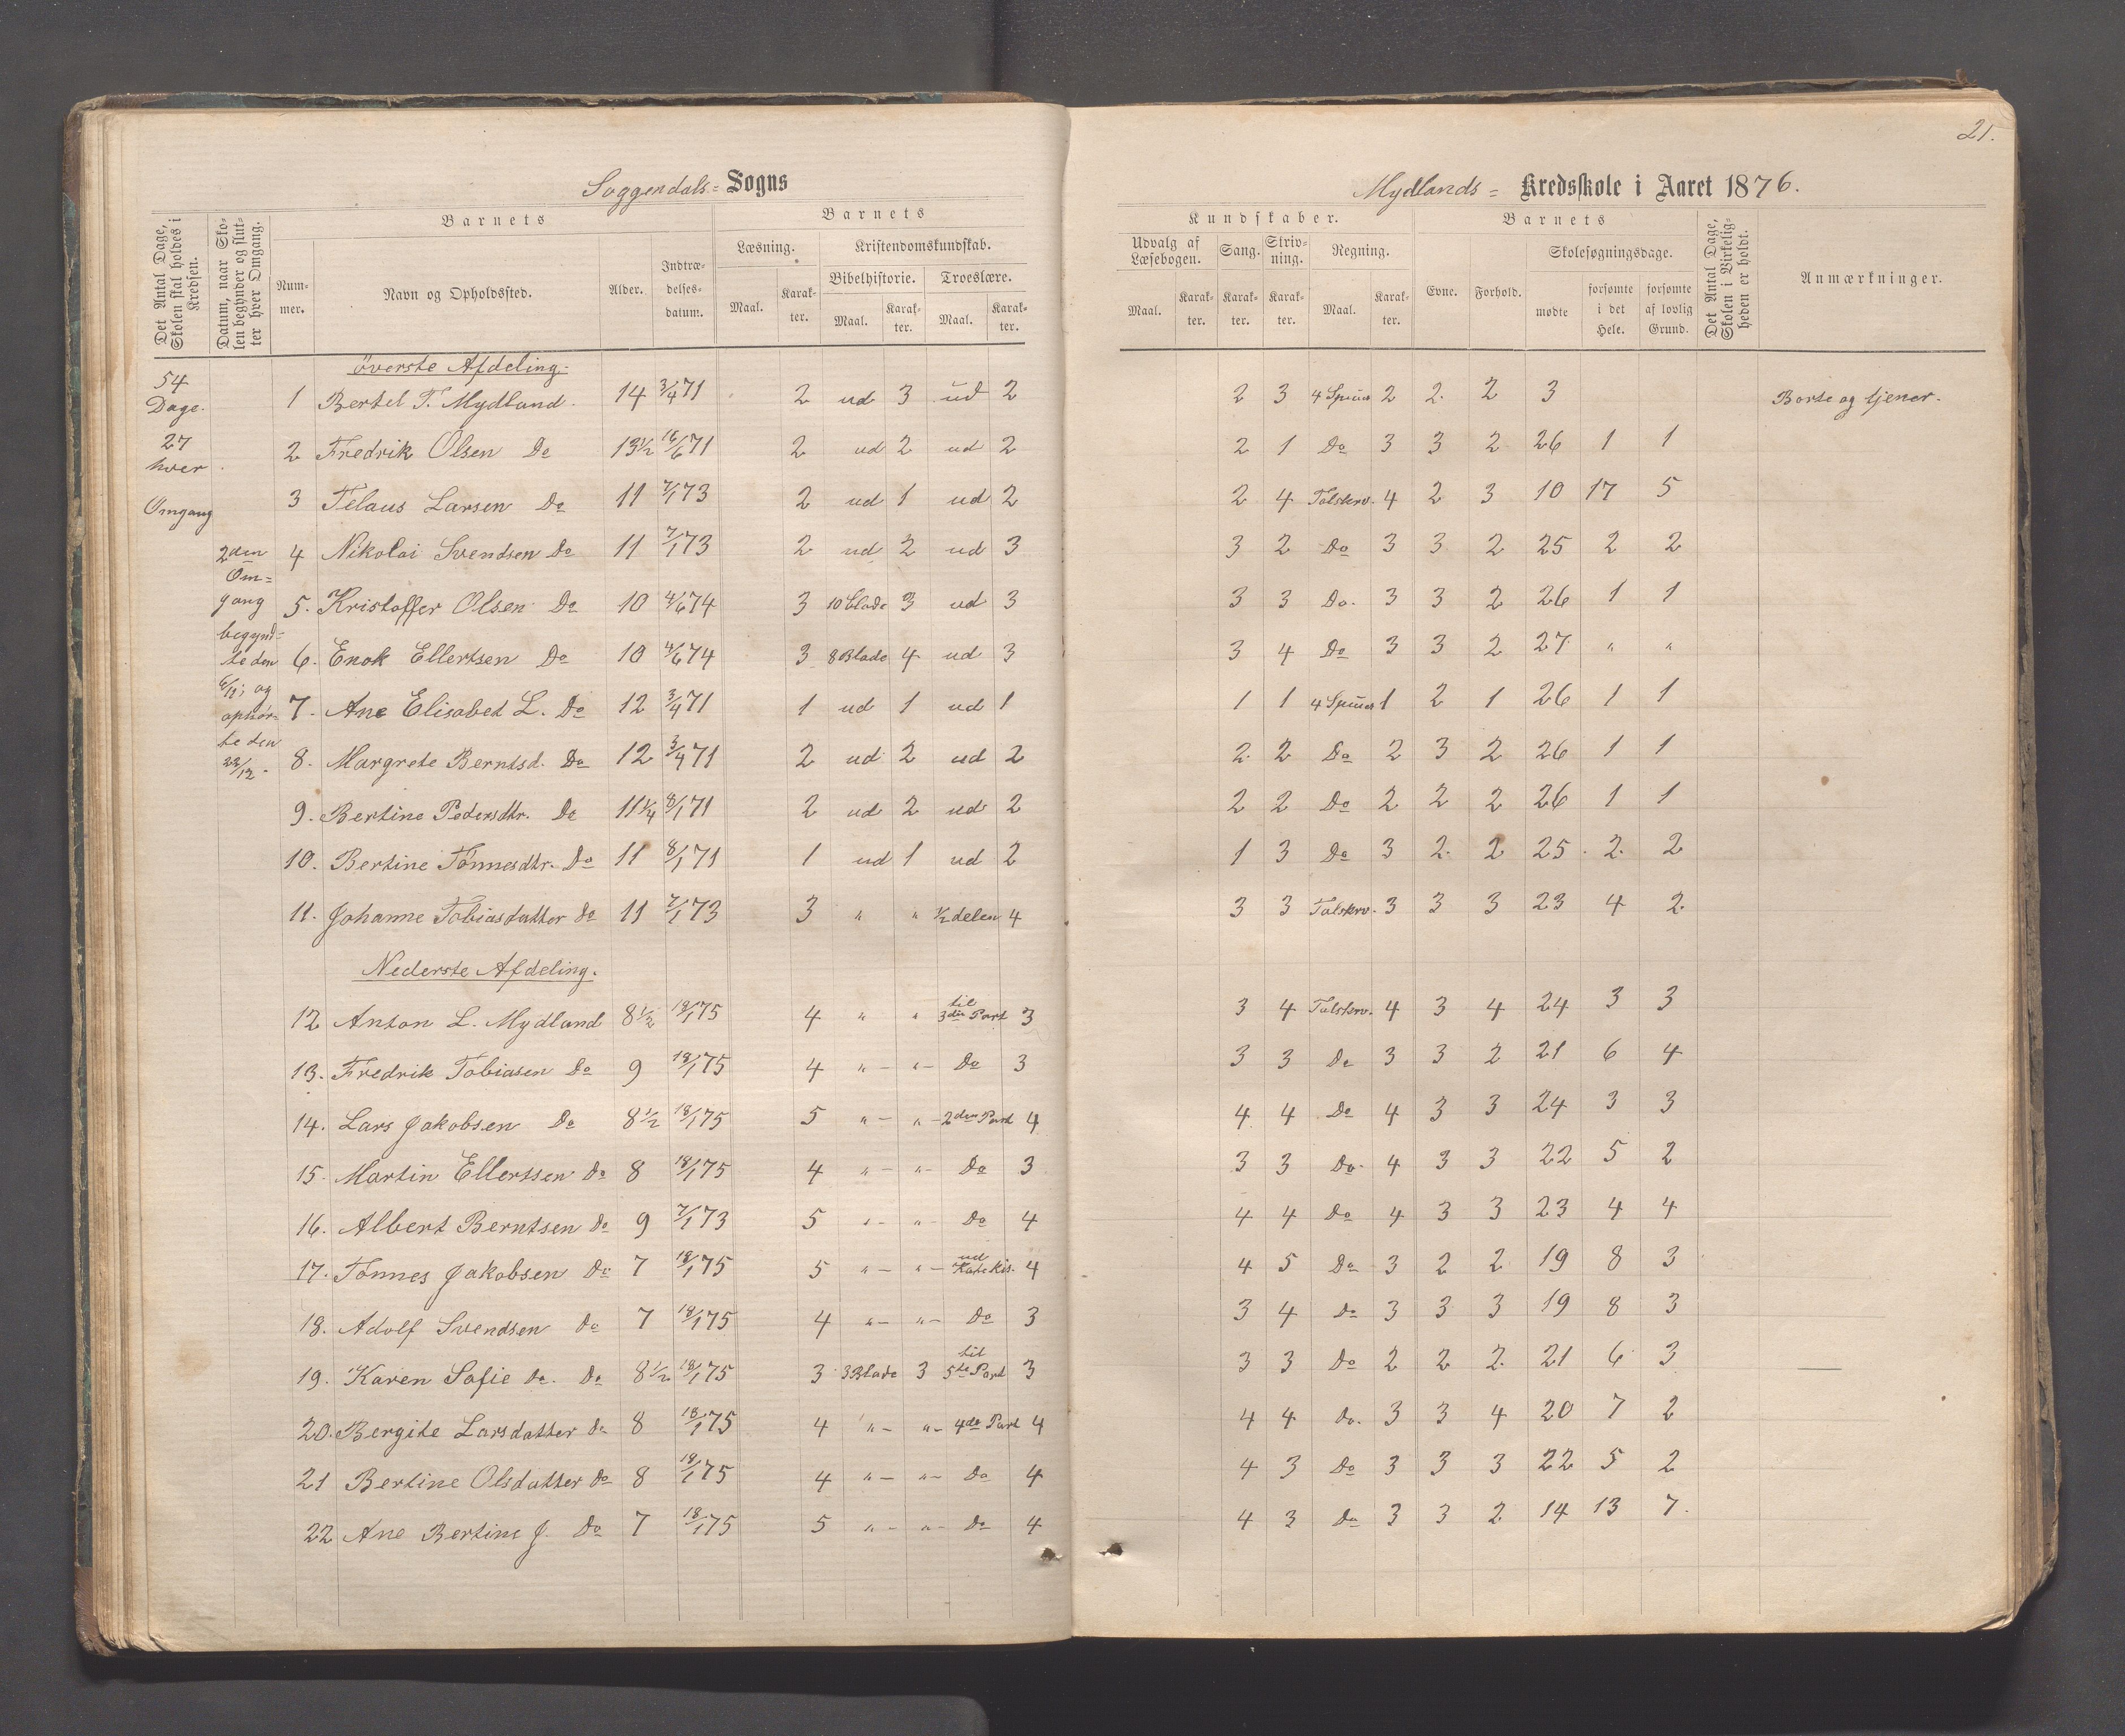 21.
Soggendals= Sogns
Mydlands= Kredsskole i Aaret 1876.
Det Antal Dage, Skolen skal holdes i Kredsen.
Datum, naar Skolen begynder og slutter hver Omgang.
Barnets
Nummer.
Navn og Opholdssted.
Alder.
Indtrædelsesdatum.
Barnets
Læsning.
Maal.
Karakter.
Kristendomskundskab.
Bibelhistorie.
Maal.
Karakter.
Troeslære.
Maal.
Karakter.
Kundskaber.
Udvalg af Læsebogen.
Maal.
Karakter.
Sang.
Karakter.
Skrivning.
Karakter.
Regning.
Maal.
Karakter.
Barnets
Evne.
Forhold.
Skolesøgningsdage.
mødte
forsømte i det Hele.
forsømte af lovlig Grund.
Det Antal Dage, Skolen i Virkeligheden er holdt.
Anmærkninger.
54
Dage.
27
hver
Omgang
2den
Om=
gang
begynd=
te den
6/11; og
ophør=
te den
22/12.
øverste Afdeling.
1 Bertel T. Mydland. 14 3/4 71 2 ud 3 ud 2 2 3 4 Spiies 2 2. 2 3 Borte og tjener.
2 Fredrik Olsen Do 13 1/2 16/6 71 2 ud 2 ud 2 2 1 Do 3 3 2 26 1 1
3 Telaus Larsen Do 11 7/1 73 2 ud 1 ud 2 2 4 Talskrv. 4 2 3 10 17 5
4 Nikolai Svendsen Do 11 7/1 73 2 ud 2 ud 3 3 2 Do 3 3 2 25 2 2
5. Kristoffer Olsen Do 10 4/6 74 3 10 blade 3 ud 3 3 3 Do. 3 3 2 26 1 1
6. Enok Ellertsen Do 10 4/6 74 3 8 Blade 4 ud 3 3 4 Do 3 3 2 27 " "
7. Ane Elisabet L. Do 12 3/4 71 1 ud 1 ud 1 1 1 4 Spiies 1 2 1 26 1 1
8. Margrete Berntsd. Do 12 3/4 71 2 ud 2 ud 2 2. 2 Do 2 3 2 26 1 1
9. Bertine Pedersdtr. Do 11 1/4 8/1 71 2 ud 2 ud 2 2 2 Do 2 2 2 26 1 1
10. Bertine Tønnesdtr. Do 11 8/1 71 1 ud 1 ud 2 1 3 Do 3 2. 2 25 2. 2
11. Johanne Tobiasdatter do 11 7/1 73 3 " " 1/2 delen 4 3 3 Talskrv. 3 3 3 23 4 2
Nederste Afdeling.
12 Anton L. Mydland 8 1/2 18/1 75 4 " " til 3die Part 3 3 4 Talskrv. 4 3 4 24 3 3
13. Fredrik Tobiasen Do 9 18/1 75 4 " " Do 3 3 3 Do 3 3 2 21 6 4
14. Lars Jakobsen Do 8 1/2 18/1 75 5 " " 2den Part 4 4 4 Do 4 3 3 24 3 3
15. Martin Ellertsen Do 8 18/1 75 4 " " Do 3 3 3 Do. 4 3 3 22 5 2
16. Albert Berntsen do 9 7/1 73 5 " " Do 4 4 4 Do 4 3 3 23 4 4
17. Tønnes Jakobsen Do 7 18/1 75 5 " " ud Katekis. 4 4 5 Do 3 2 2 19 8 3
18. Adolf Svendsen do 7 18/1 75 4 " " Do 3 3 4 do 3 3 3 19 8 3
19. Karen Sofie do. Do 8 1/2 18/1 75 3 3 Blade 3 til 5te Part 3 3 3 Do 2 2 2. 21 6 3
20. Bergite Larsdatter do 8 18/1 75 4 " " 4de Part 4 4 4 do. 3 3 4 20 7 2
21 Bertine Olsdatter Do 8 18/1 75 4 " " Do 4 4 3 Do 3 3 3 22 5 2
22 Ane Bertine J. Do 7 18/1 75 5 " " Do 4 4 3 Do 3 3 2 14 13 7.